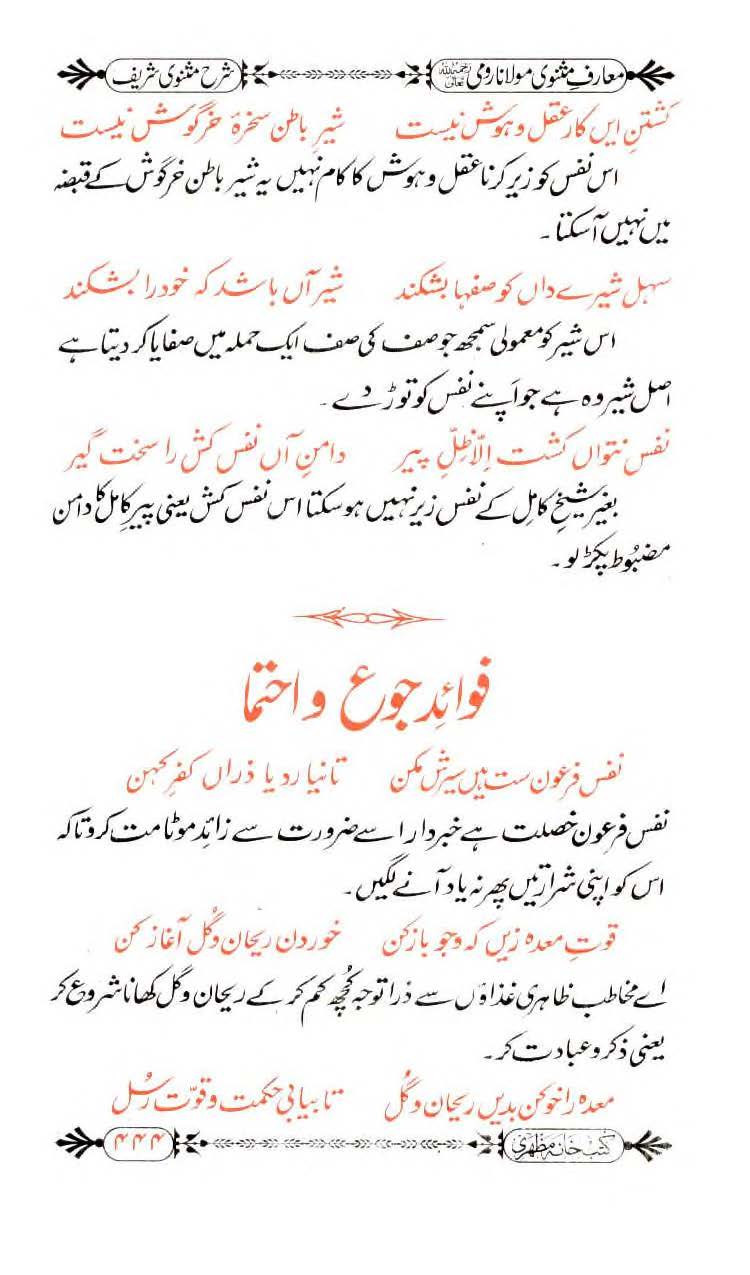 معارفِ مثنوی مولانا رومی رحمہ اللہ تعالیٰ شرح مثنوی شریف
کشتنِ ایں کارِ عقل و ہوش نیست شیرِ باطن سخرۂ خرگوش نیست
اس نفس کو زیر کرنا عقل و ہوش کا کام نہیں یہ شیر باطن خرگوش کے قبضہ
میں نہیں آسکتا۔
سہل شیرے داں کو صفہا بشکند شیر آں باشد کہ خود را بشکند
اس شیر کو معمولی سمجھ جو صف کی صف ایک حملہ میں صفایا کر دیتا ہے
اصل شیر وہ ہے جو اَپنے نفس کو توڑ دے۔
نفس نتواں کشت اِلاّ ظِلِّ پیر دامنِ آں نفس کش را سخت گیر
بغیر شیخِ کامِل کے نفس زیر نہیں ہوسکتا اس نفس کش یعنی پیرِ کامل کا دامن
مضبُوط پکڑ لو۔
فوائدِ جوع و احتما
نفس فرعون ست ہیں سیرش مکن تا نیا رد یا ذراں کفرِ کہن
نفس فرعون خصلت ہے خبردار اسے ضرورت سے زائد موٹا مت کرو تاکہ
اس کو اپنی شرارتیں پھر نہ یاد آنے لگیں۔
قوتِ معدہ زیں کہ وجو باز کن خوردن ریحان و گُل آغاز کن
اے مخاطب ظاہری غذاؤں سے ذرا توجہ کُچھ کم کر کے ریحان و گل کھانا شروع کر
یعنی ذکر و عبادت کر۔
معدہ را خوکن بدیں ریحان و گُل تا بیابی حکمت و قوّت رسُل
کتب خانہ مظہری ۴۴۴